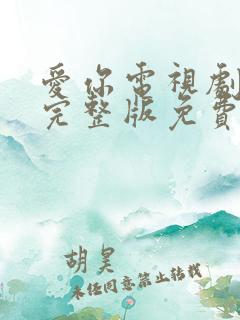 愛你電視劇
完整版免費
胡昊
未經同意禁止轉載